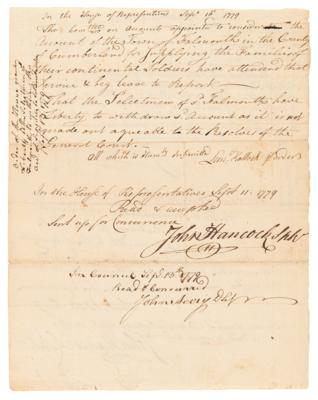 In the House of Representatives Sept 10th 1779
The Comtee on accounts appointed to consider the
Account of the Town of Falmouth in the County
of Cumberland for supplying the Families
of their continental Soldiers have attended that
Service & beg leave to Report
That the Selectmen of sd Falmouth have
Liberty to withdraw sd Account as it is not
made out agreable to the Resolves of the
General Court.
All which is Humbly submitted
In the House of Representatives Sept 11. 1779
Read & accepted
Sent up for Concurrence
John Hancock Spkr
In Council Sept 13th 1779
Read & Concurred
John Avery D Secy